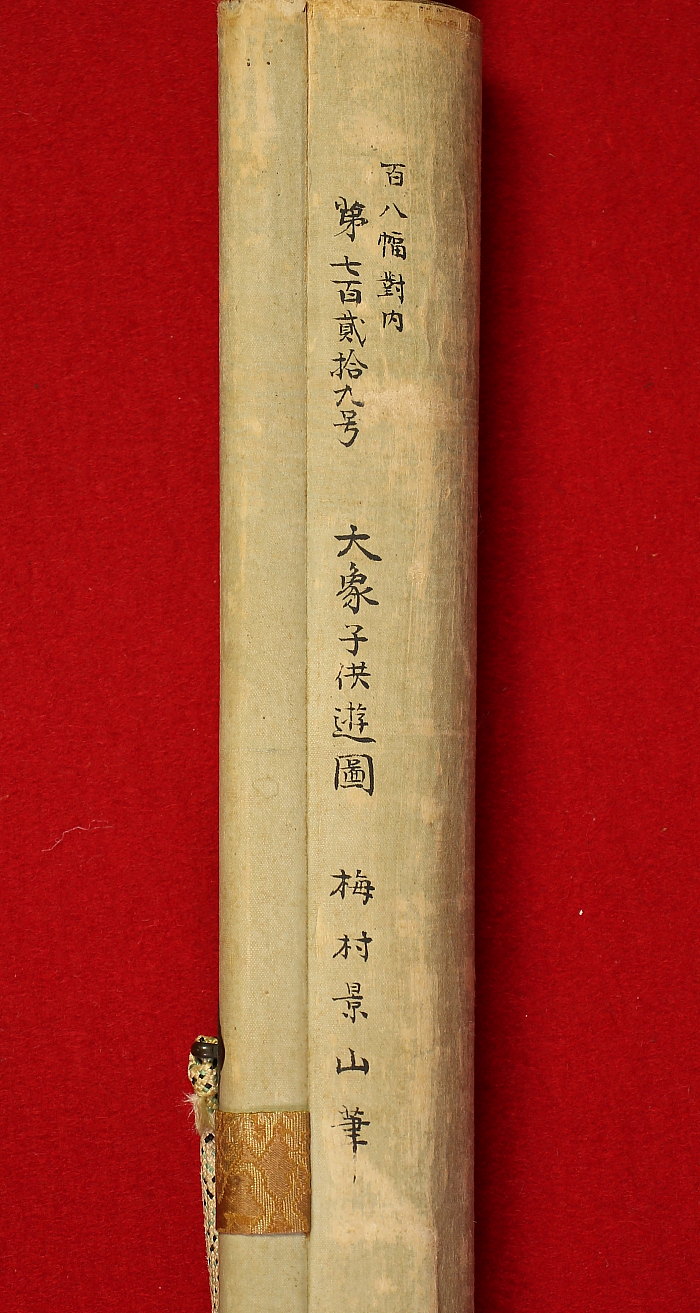 百八幅對内
第七百貳拾九号
大象子供遊圖
梅村景山筆